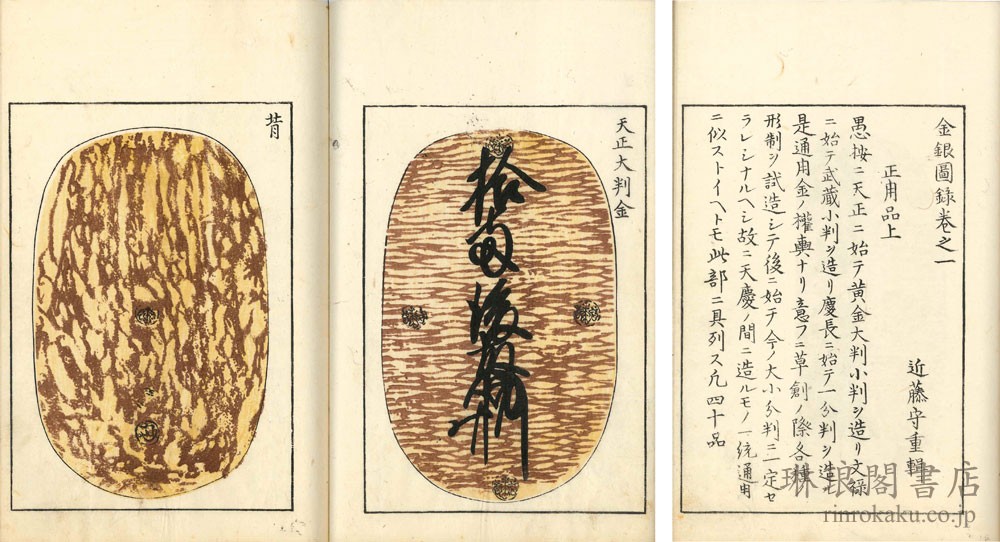 金銀圖錄卷之一
正用品上
近藤守重輯
愚按ニ天正ニ始テ黄金大判小判ヲ造リ文祿
ニ始テ武藏小判ヲ造リ慶長ニ始テ一分判ヲ造ル
是通用金ノ權輿ナリ意フニ草創ノ際各種
形制ヲ試造シテ後ニ始テ今ノ大小分判ニ一定セ
ラレシナルヘシ故ニ天慶ノ間ニ造ルモノ一統通用
ニ似ストイヘトモ此部ニ具列ス凢四十品
天正大判金
拾両後藤
背
琳琅閣書店
rinrokaku.co.jp